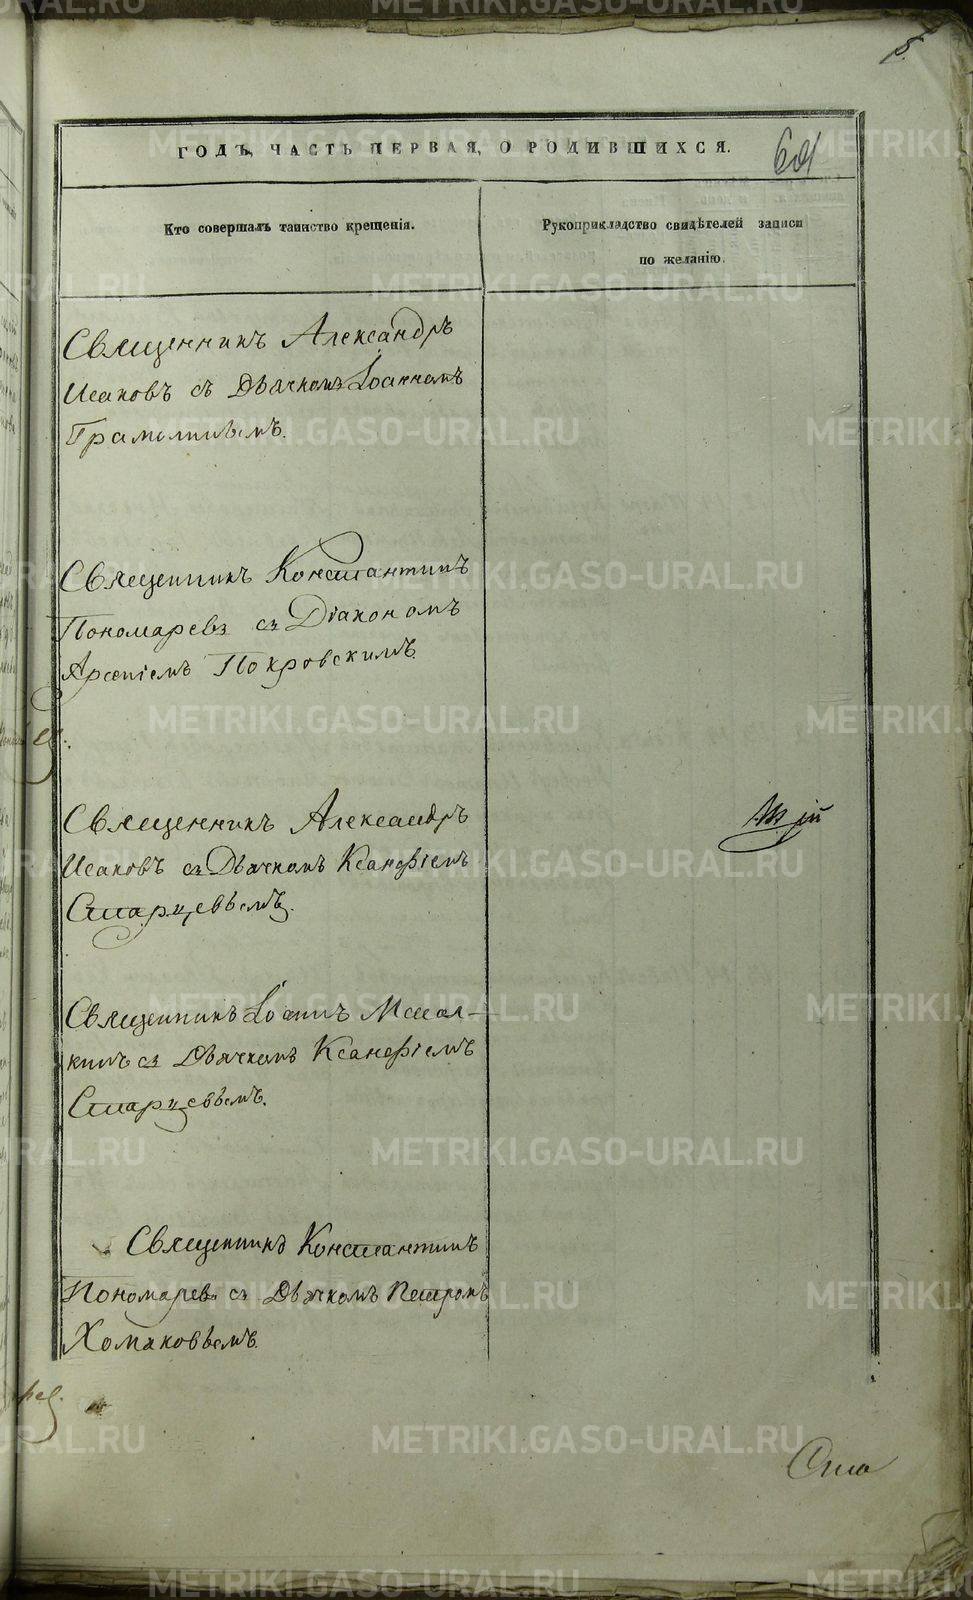 5.
ГОДЪ, ЧАСТЬ ПЕРВАЯ, О РОДИВШИХСЯ.
Кто совершалъ таинство крещенія.
Рукоприкладство свидѣтелей записи
по желанію.
Священникъ Александръ
Исаковъ съ Дьячкомъ Іоанномъ
Грамолинымъ.
Священникъ Константинъ
Пономаревъ съ Діакономъ
Арсеніемъ Покровскимъ.
Священникъ Александръ
Исаковъ съ Дьячкомъ Ксанѳіемъ
Старцевымъ.
Священникъ Іоаннъ
съ Дьячкомъ Ксанѳіемъ
Старцевымъ.
Священникъ Константинъ
Пономаревъ съ Дьячкомъ Петромъ
Хомяковымъ.
METRIKI.GASO-URAL.RU